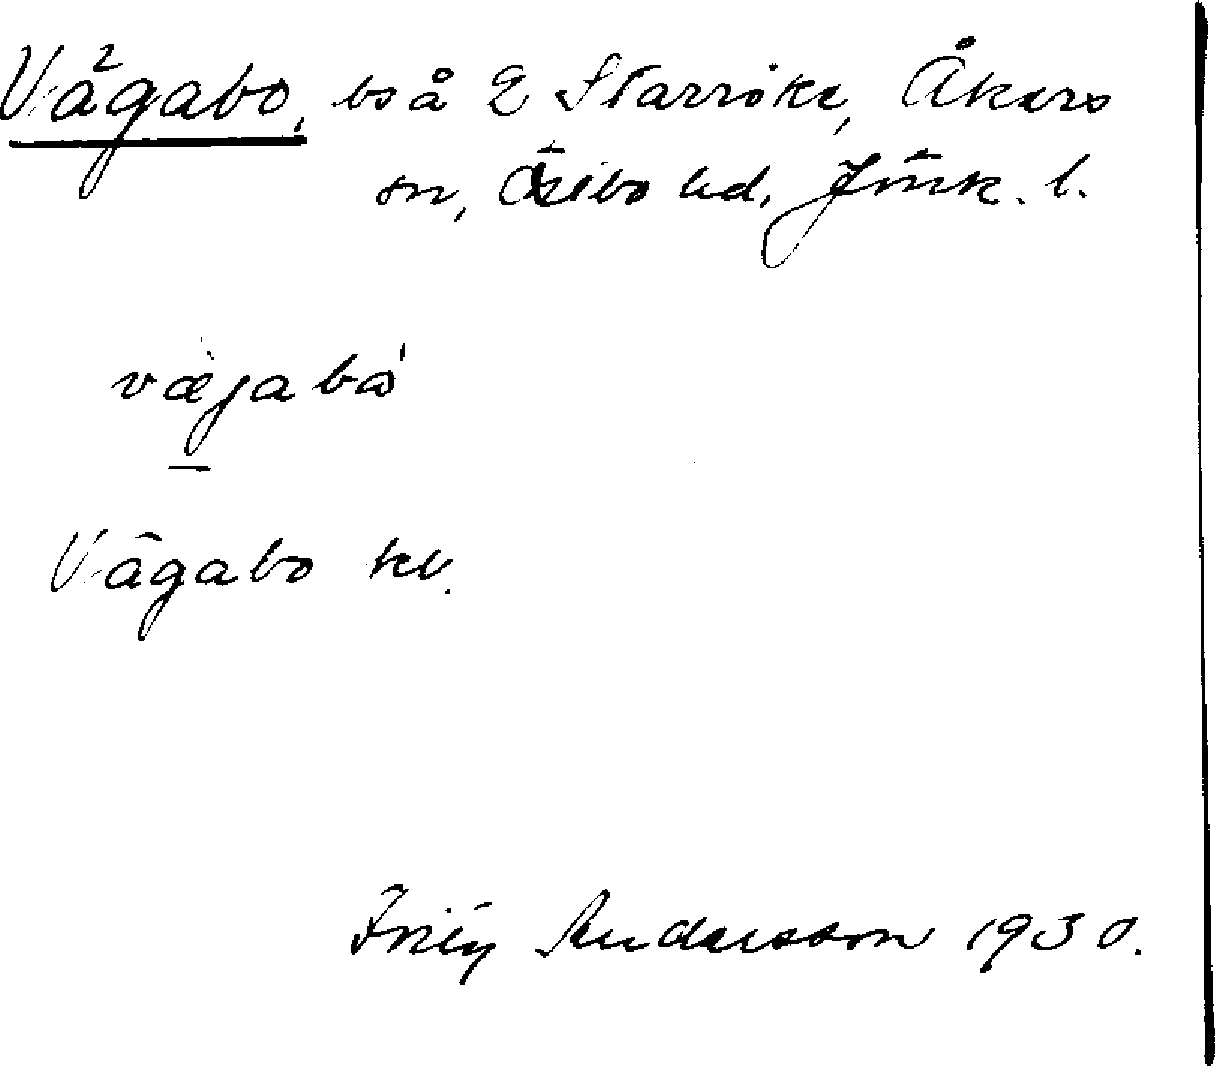 Vägabo, bs å E Starrike, Åkers
sn, Östbo hd, Jönk. l.
väjabo
Vägabo kv.
Fritz Andersson 1930.